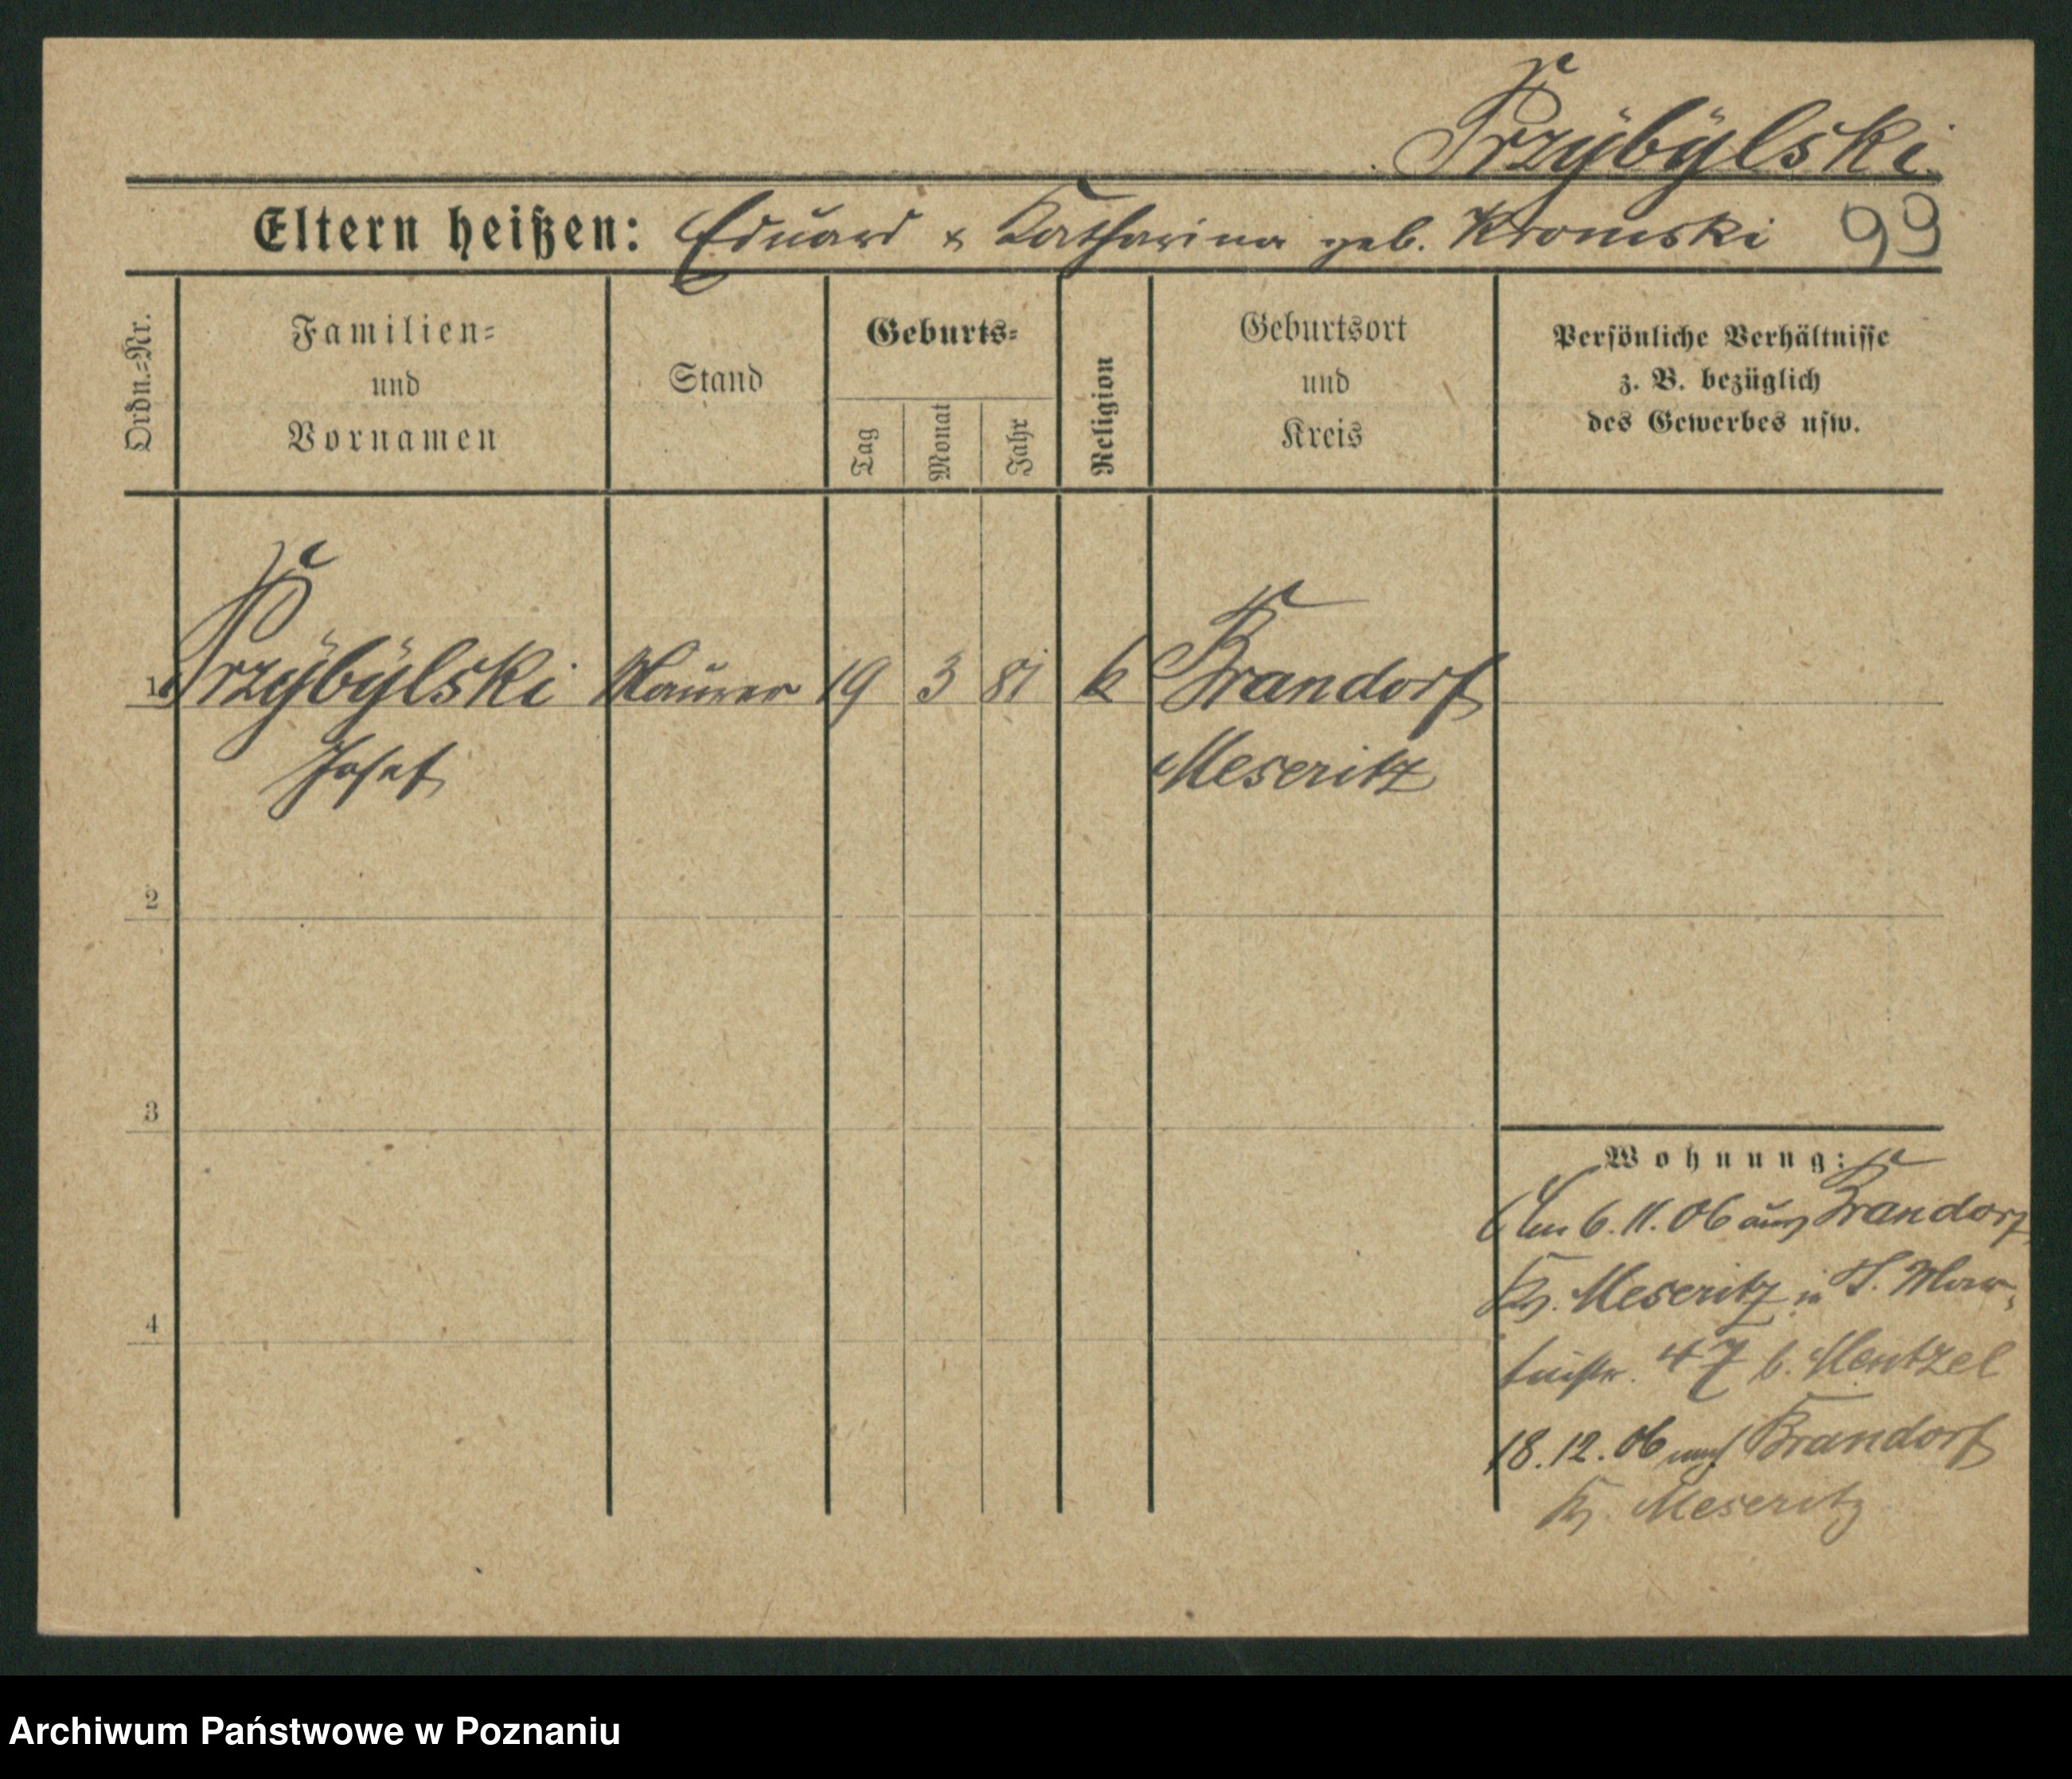 Przÿbÿlski.
Eltern heißen: Eduard & Katharina geb. Kromski 99
Ordn.=Nr.
Familien=
und
Vornamen
Stand
Geburts=
Tag
Monat
Jahr
Religion
Geburtsort
und
Kreis
Persönliche Verhältnisse
z. B. bezüglich
des Gewerbes usw.
1 Przÿbÿlski Maurer 19 3 81 k Brandorf
Josef Meseritz
2
3
4
Wohnung:
Am 6.11.06 aus Brandorf
Krs. Meseritz in S. Mar-
tinstr. 47 b. Mentzel
18.12.06 nach Brandorf
Krs. Meseritz
Archiwum Państwowe w Poznaniu